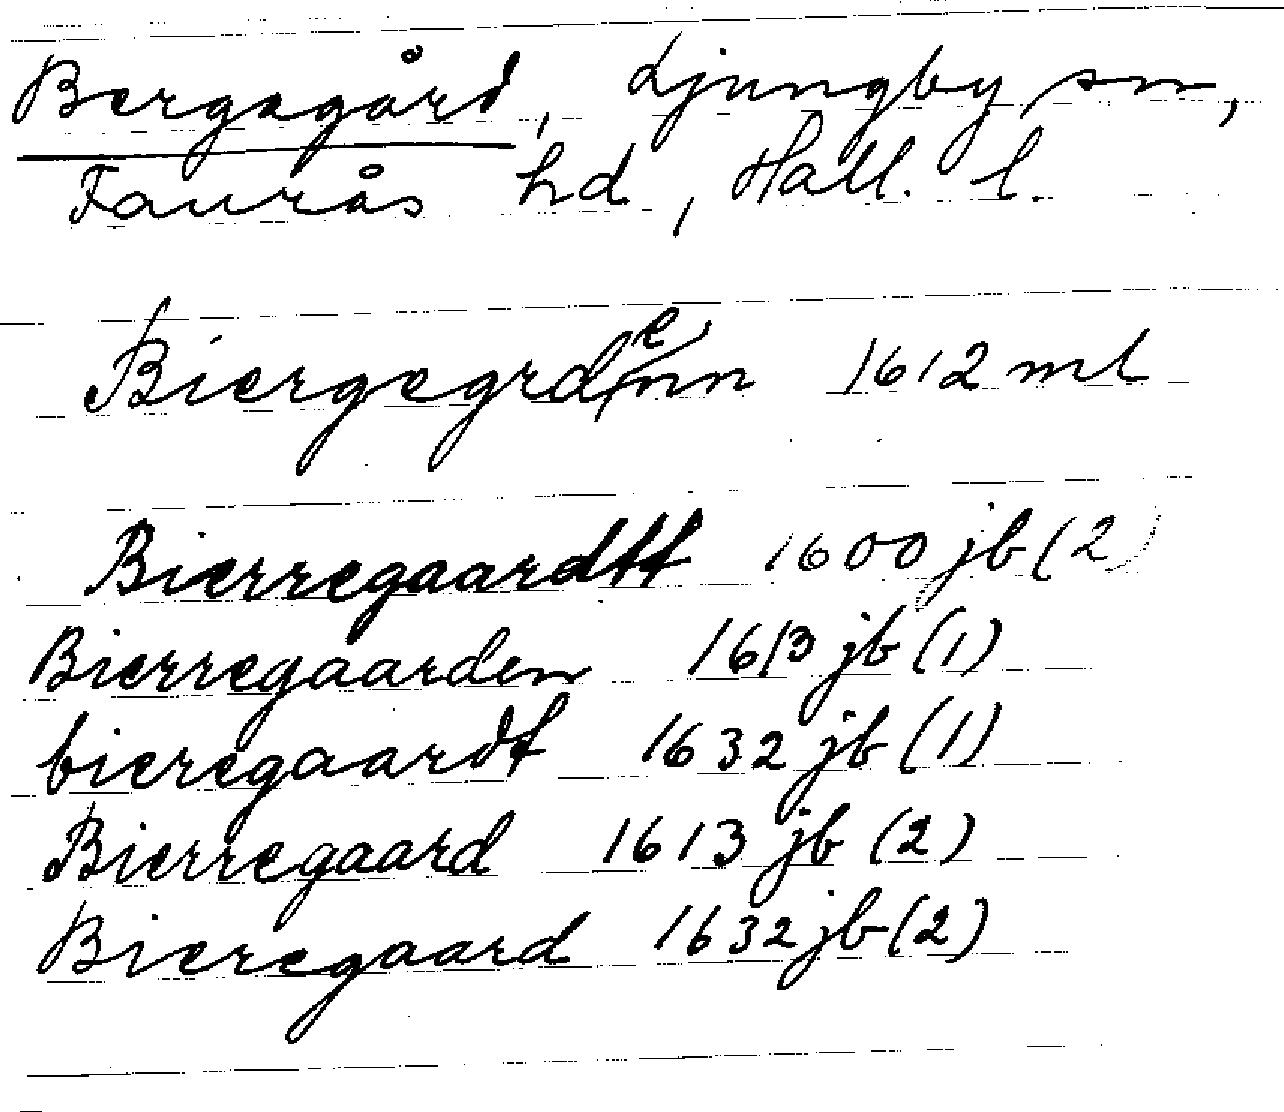 Bergagård, Ljungby sn,
Faurås hd, Hall. l.
Biergegrdenn 1612 ml
Bierregaardtt 1600 jb (2)
Bierregaarden 1613 jb (1)
bieregaardt 1632 jb (1)
Bierregaard 1613 jb (2)
Bieregaard 1632 jb (2)